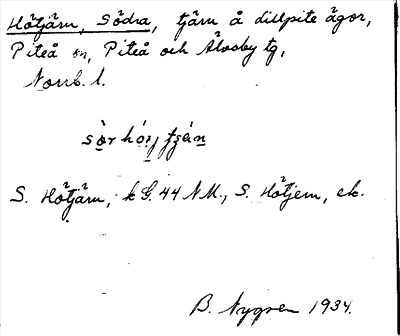 Hötjärn, Södra, tjärn å dillpite ägor,
Piteå sn, Piteå och Älvsby tg,
Norrb. l.
S. Hötjärn, k G. 44 N M., S. Hötjern, ek.
B. Nygren 1934.